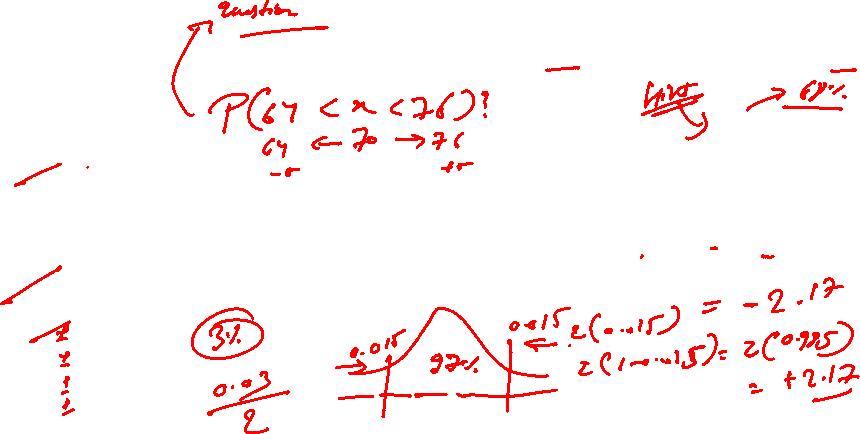 Question
P(64 < x < 76)?
64 ← 70 → 76
-σ +σ
→ 68%
3%
0.03
2
0.015
97%
0.015
z(0.015) = -2.17
z(1-0.015) = z(0.985)
= +2.17